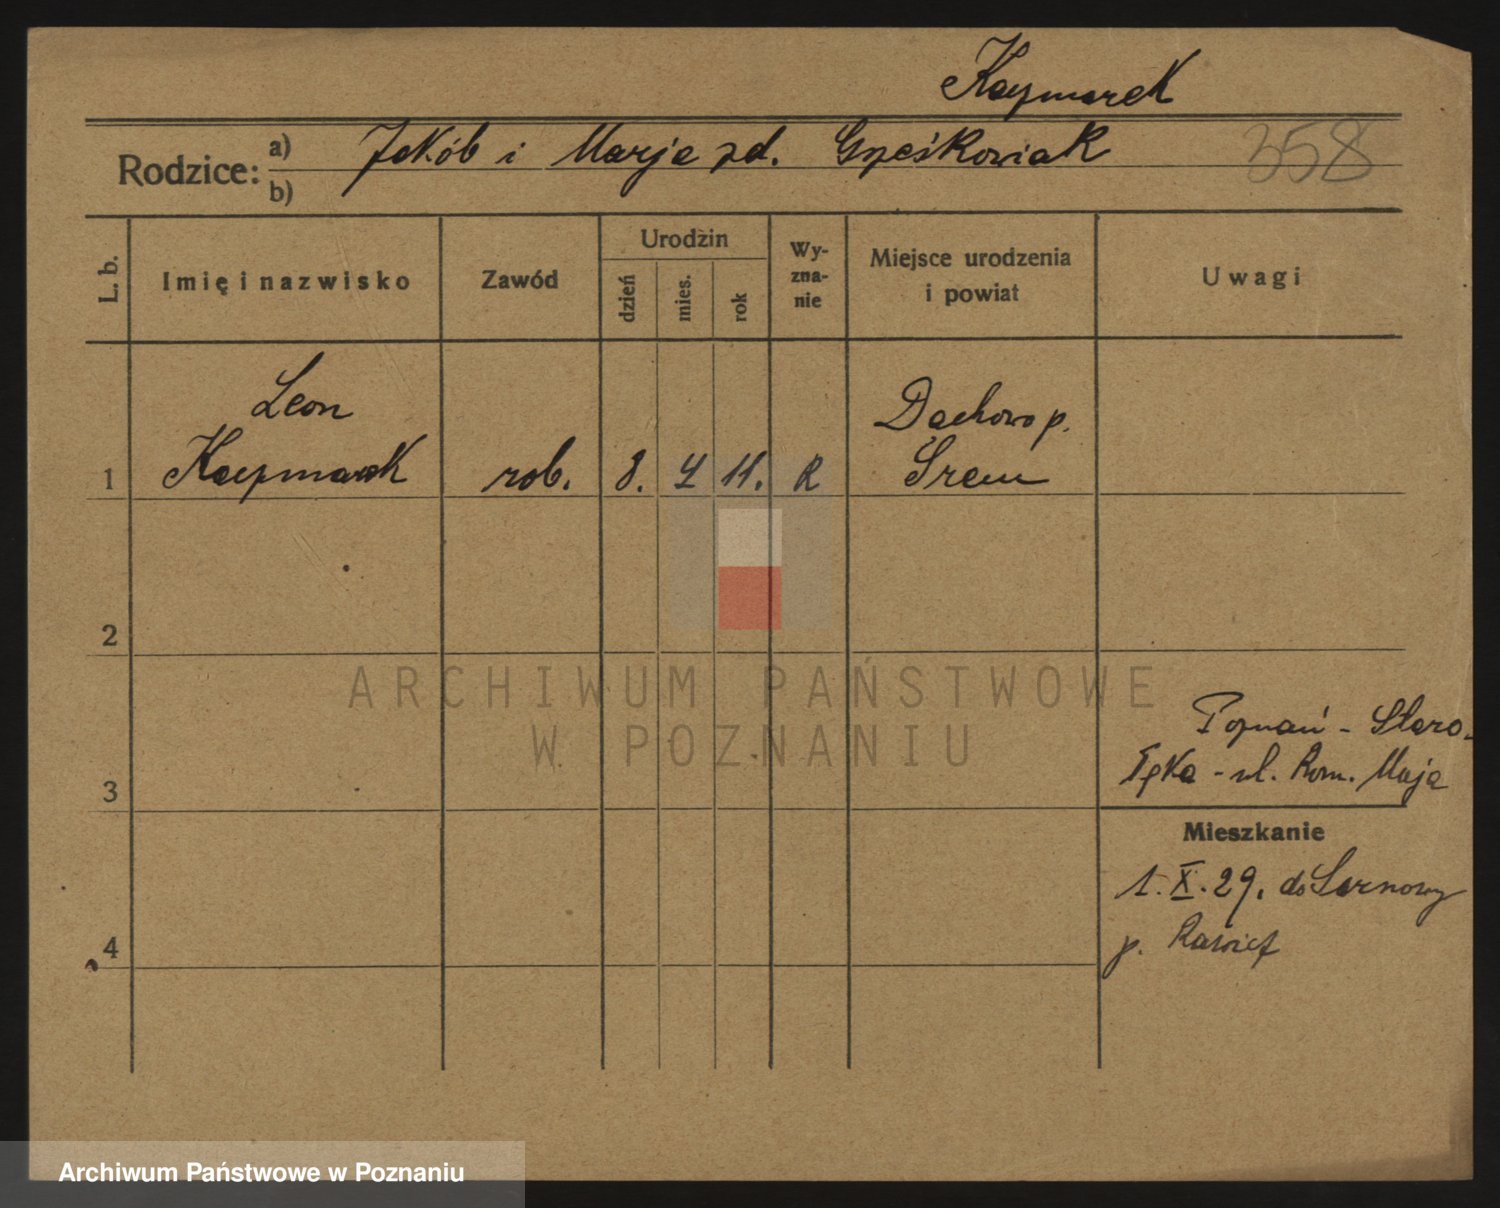 Kaczmarek
Rodzice: a) Jakób i Marja zd. Grześkowiak 358
b)
L. b. Imię i nazwisko Zawód Urodzin dzień mies. rok Wy-zna-nie Miejsce urodzenia i powiat Uwagi
Leon Dachowo p.
1 Kaczmarek rob. 8. 4 11. R Śrem
2
ARCHIWUM PAŃSTWOWE
W POZNANIU
Poznań - Staro-
łęka - ul. Rom. Maja
3
Mieszkanie
1. X. 29. do Sarnowy
4 p. Rawicz
Archiwum Państwowe w Poznaniu